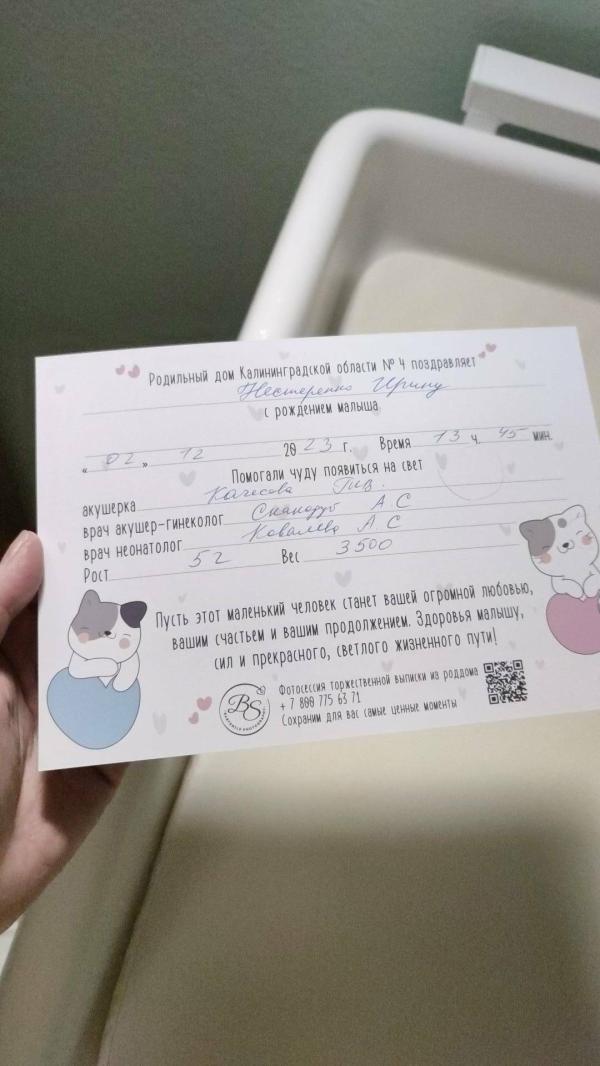 Родильный дом Калининградской области № 4 поздравляет
Нестеренко Ирину
с рождением малыша
« 02 » 12 2023 г. Время 13 ч. 45 мин.
Помогали чуду появиться на свет
акушерка
врач акушер-гинеколог А С
врач неонатолог Ковалева А С
Рост 52 Вес 3500
Пусть этот маленький человек станет вашей огромной любовью,
вашим счастьем и вашим продолжением. Здоровья малышу,
сил и прекрасного, светлого жизненного пути!
BS
Фотосессия торжественной выписки из роддома
+ 7 800 775 63 71
Сохраним для вас самые ценные моменты